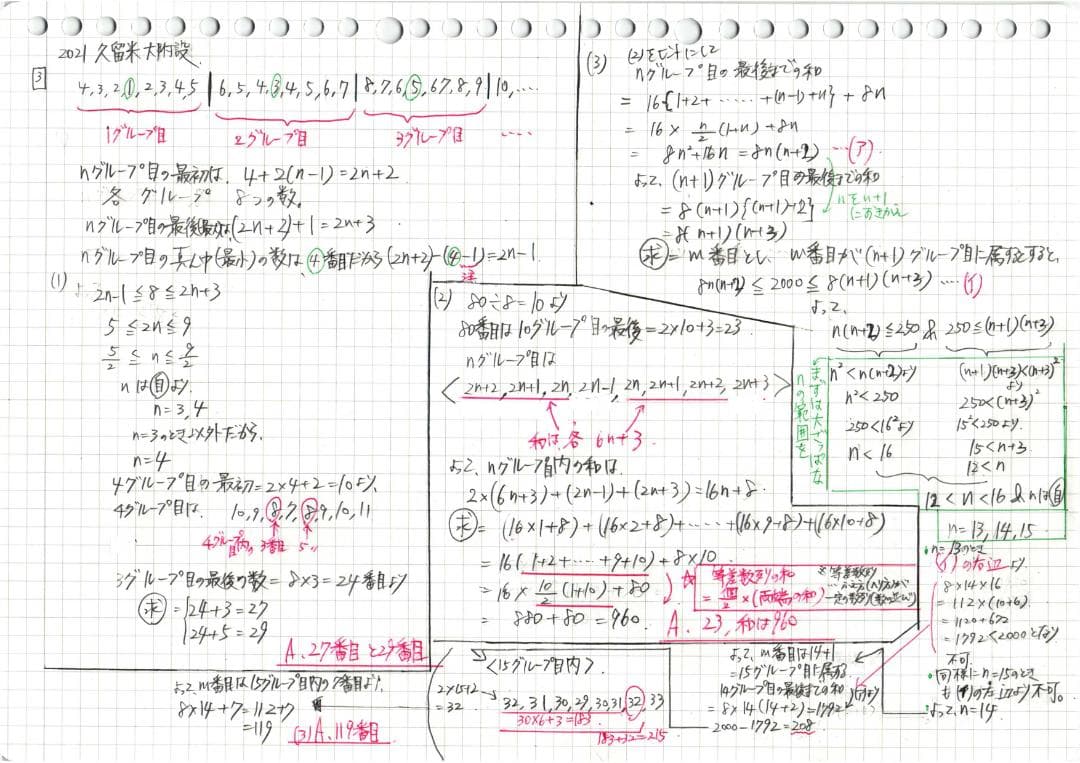 2021 久留米大附設
3
4,3,2,1,2,3,4,5 | 6,5,4,3,4,5,6,7 | 8,7,6,5,6,7,8,9 | 10,……
1グループ目 2グループ目 3グループ目 ……
nグループ目の最初は、4+2(n-1)=2n+2
各グループ 8つの数。
nグループ目の最後は、(2n+2)+1=2n+3
nグループ目の真ん中(最小)の数は、④番目だから(2n+2)-(④-1)=2n-1
注
(1)
2n-1≦8≦2n+3
5≦2n≦9
5/2≦n≦9/2
nは自より、
n=3,4
n=3のとき以外だから、
n=4
4グループ目の最初=2×4+2=10より、
4グループ目は、10,9,8,7,8,9,10,11
4グループ目内の3番目 5〃
3グループ目の最後の数=8×3=24番目より
求={24+3=27
24+5=29
A. 27番目と29番目
(2) 80÷8=10より
80番目は10グループ目の最後=2×10+3=23
nグループ目は
<2n+2, 2n+1, 2n, 2n-1, 2n, 2n+1, 2n+2, 2n+3>
和は各6n+3
よって、nグループ目内の和は、
2×(6n+3)+(2n-1)+(2n+3)=16n+8
求=(16×1+8)+(16×2+8)+……+(16×9+8)+(16×10+8)
=16(1+2+……+9+10)+8×10
=16×10/2(1+10)+80
=880+80=960
等差数列の和
=個/2×(両端の和)
※等差数列
A. 23, 和は960
(3) (2)を
nグループ目の最後までの和
=16{1+2+……+(n-1)+n}+8n
=16×n/2(1+n)+8n
=8n²+16n=8n(n+2) …(ア)
よって、(n+1)グループ目の最後までの和
=8(n+1){(n+1)+2}
=8(n+1)(n+3)
nをn+1におきかえ
求=m番目とし、m番目が(n+1)グループ目に属すとすると、
8n(n+2)≦2000≦8(n+1)(n+3) …(イ)
よって、
n(n+2)≦250 & 250≦(n+1)(n+3)
まずは大ざっぱなnの範囲を
n²<n(n+2)より
n²<250
250<16²より
n<16
(n+1)(n+3)<(n+3)²
より
250<(n+3)²
15²<250より
15<n+3
12<n
12<n<16&nは自
n=13,14,15
・n=13のとき
(イ)の右辺より
8×14×16
=112×(10+6)
=1120+672
=1792<2000となり
不可
・同様にn=15のとき
も(イ)の左辺より不可。
よって、n=14
よって、m番目は14+1
=15グループ目に属する
14グループの最後までの和
=8×14(14+2)=1792
2000-1792=208
<15グループ目内>
2×15+2
=32
32,31,30,29,30,31,32,33
30×6+3=183
183+32=215
よってm番目は15グループ目内の7番目より、
8×14+7=112+7
=119
(3)A. 119番目